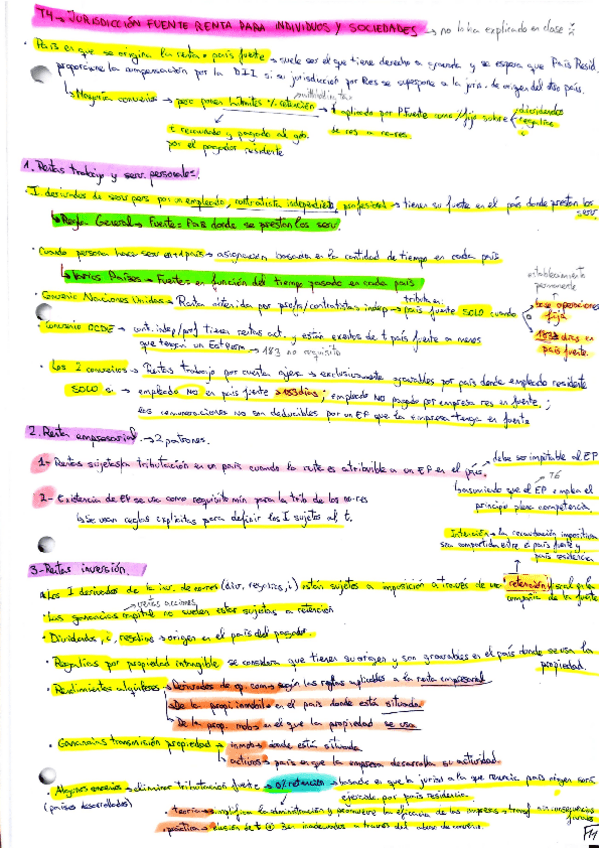 T4 → JURISDICCIÓN FUENTE RENTA PARA INDIVIDUOS Y SOCIEDADES → no lo ha explicado en clase
• País en que se origina la renta = país fuente → suele ser el que tiene derecho a gravarla y se espera que País Resid.
proporcione la compensación por la DII si su jurisdicción por Res se superpone a la juris. de origen del otro país.
withholding tax
↳ Mayoría convenios → pero ponen límites % retención → t aplicado por PFuente como // fijo sobre dividendos
regalías
i
de res a no-res
t recaudado y pagado al gob.
por el pagador residente
1. Rentas trabajo y serv. personales.
I derivados de serv pers por un empleado, contratista independiente, profesional → tienen su fuente en el país donde prestan los serv.
↳ Regla General → Fuente = País donde se prestan los serv.
• Cuando persona hace serv en +1 país → asignación basada en la cantidad de tiempo en cada país
↳ Varios Países → Fuente en función del tiempo pasado en cada país
establecimiento
permanente
• Convenio Naciones Unidas → Renta obtenida por profs/contratistas indep → tributa en: país fuente SOLO cuando
base operaciones
fija
o
183 días en
país fuente.
• Convenio OCDE → cont. indep/prof tienen rentas act. y están exentos de t país fuente a menos
que tengan un Est Perm → 183 no requisito
• Los 2 convenios → Rentas trabajo por cuenta ajena → exclusivamente gravables por país donde empleado residente
SOLO si → empleado NO en país fuente >183 días; empleado NO pagado por empresa res en fuente;
las remuneraciones no son deducibles por un EP que la empresa tenga en fuente
2. Renta empresarial → 2 patrones.
1- Rentas sujetas a tributación en un país cuando la renta es atribuible a un EP en el país.
debe ser imputable al EP
basándose que el EP emplea el
principio plena competencia.
2- Existencia de EP se usa como requisito min para la trib de los no-res
↳ Se usan reglas explícitas para definir los I sujetos al t.
Intención → la recaudación impositiva
sea compartida entre el país fuente y
país residencia.
3- Rentas inversión.
• Los I derivados de la inv. de no-res (div, regalías, i) están sujetos a imposición a través de una retención
ventas acciones
• Las ganancias capital no suelen estar sujetas a retención
• Dividendos, i, regalías → origen en el país del pagador.
• Regalías por propiedad intangible se considera que tienen su origen y son gravables en el país donde se usa la
propiedad.
• Rendimientos alquileres → Derivados de op. com → según las reglas aplicables a la renta empresarial
→ De la prop. inmob → en el país donde está situada
→ De la prop. mob → en el que la propiedad se usa
• Ganancias transmisión propiedad → inmob → donde está situada
→ activos → país en que la empresa desarrolla su actividad.
• Algunos convenios → eliminar tributación fuente → 0% retención → basado en que la jurisd a la que renuncia país origen será
(países desarrollados)
ejercida por país residencia.
• teoría → simplifica la administración y promueve la eficacia de las empresas
• práctica →
F11